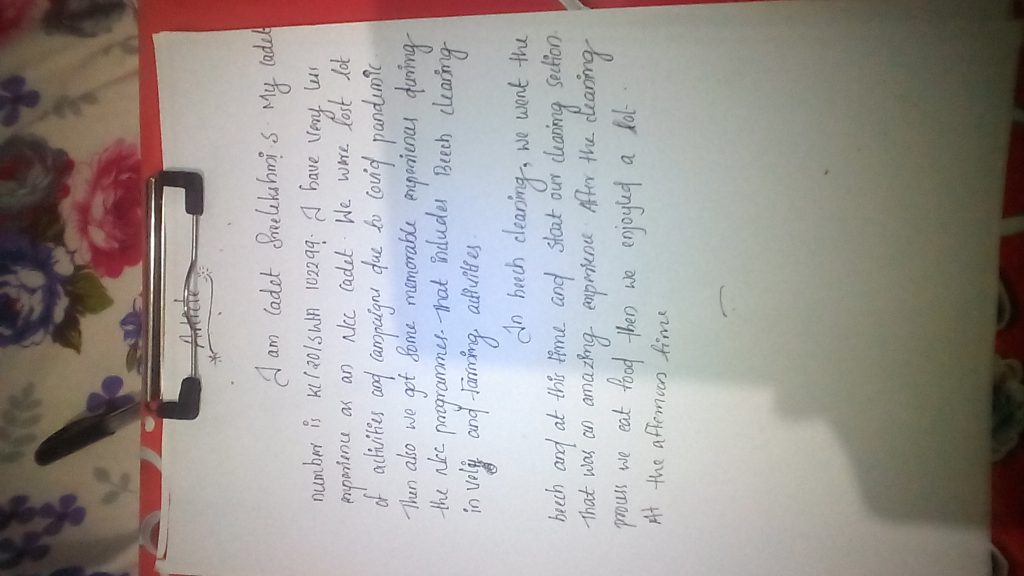 Article
I am cadet Sreelekshmi S. My cadet
number is KL(20)SWA 102299. I have very less
experience as an Ncc cadet. We were lost lot
of activities and campaigns due to covid pandamic
Then also we got some memorable experiences during
the Ncc programmes. That includes Beech clearing
in Veli and farming activities.
In beech clearing, we want the
beech and at this time and start our clearing section.
That was an amazing experience. After the clearing
process we eat food then we enjoyied a lot.
At the afternoon time